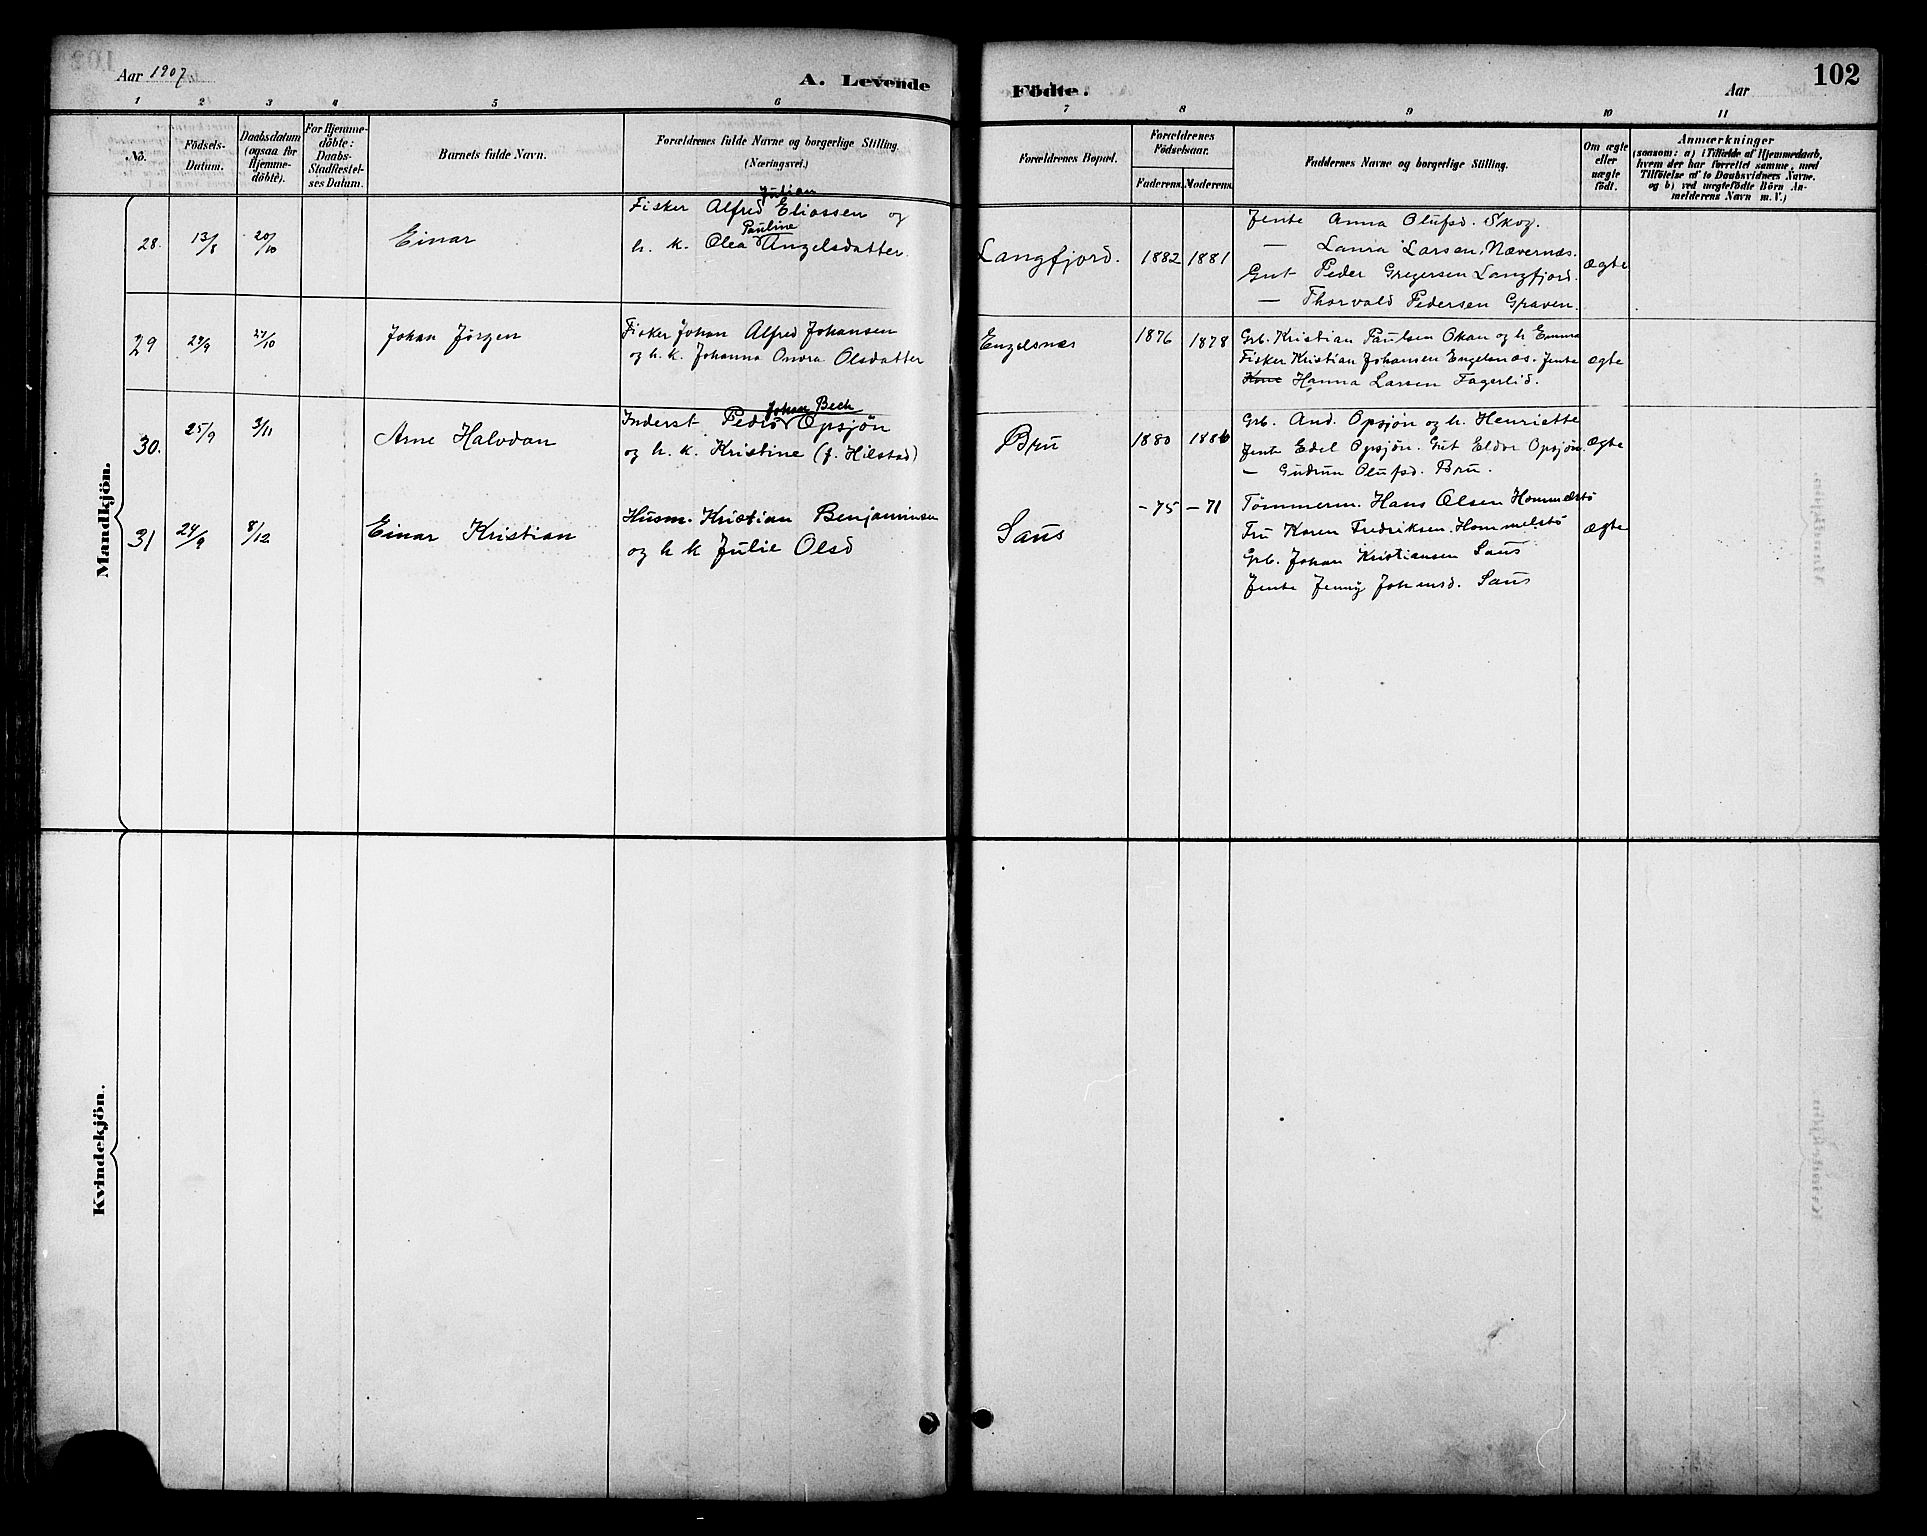 102
Aar 1907.
A. Levende
Födte.
Aar
1 2 3 4 5 6 7 8 9 10 11
No.
Födsels-
Datum.
Daabsdatum
(ogsaa for
Hjemme-
döbte).
For Hjemme-
döbte:
Daabs-
Stadfæstel-
ses Datum.
Barnets fulde Navn.
Forældrenes fulde Navne og borgerlige Stilling.
(Næringsvei.)
Forældrenes Bopæl.
Forældrenes
Födselsaar.
Faderens. Moderens.
Faddernes Navne og borgerlige Stilling.
Om ægte
eller
uægte
födt.
Anmærkninger
(saasom: a) i Tilfælde af Hjemmedaab,
hvem der har forrettet samme, med
Tilföielse af to Daabsvidners Navne,
og b) ved uægtefödte Börn An-
melderens Navn m. V.)
Mandkjön.
28. 13/8 20/10
Einar
Julian
Fisker Alfred Eliassen og
Pauline
h. k. Olea Angelsdatter.
Langfjord.
1882 1881
Jente Anna Olufsd. Skog.
— Laura Larsen, Nævernæs.
Gut Peder Gregersen Langfjord.
— Thorvald Pedersen Graven.
ægte
29 29/9 27/10
Johan Jörgen
Fisker Johan Alfred Johansen
og h. k. Johanna Andra Olsdatter
Engelsnæs
1876 1878
Grb. Kristian Paulsen Okan og h. Emma
Fisker Kristian Johansen Engelsnæs. Jente
Kone Hanna Larsen Fagerlid.
ægte
30. 25/9 3/11
Arne Halvdan
Johan Bech
Inderst Peder Opsjön
og h. k. Kristine (f. Hilstad)
Bru
1880 1886
Grb. And. Opsjön og h. Henriette
Jente Edel Opsjön. Gut Eldor Opsjön.
— Gudrun Olufsd. Bru.
ægte
31 24/9 8/12
Einar Kristian
Husm. Kristian Benjaminsen
og h k Julie Olsd
Saus
-75 -71
Tömmerm. Hans Olsen Hommelstö
Fru Karen Fredriksen. Hommelstö
Grb. Johan Kristiansen Saus
Jente Jenny Johansd. Saus
ægte
Kvindekjön.